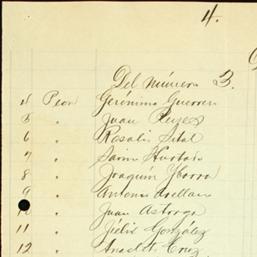 4.
Del número 3.
4 Peon Gerónimo Guerrero
5 " Juan Perez
6 " Rosalio Vital
7 " Jaime Hurtado
8 " Joaquín Ybarra
9 " Antonio Arellano
10 " Juan Astorga
11 " Félix González
12 " Anaclet Cruz